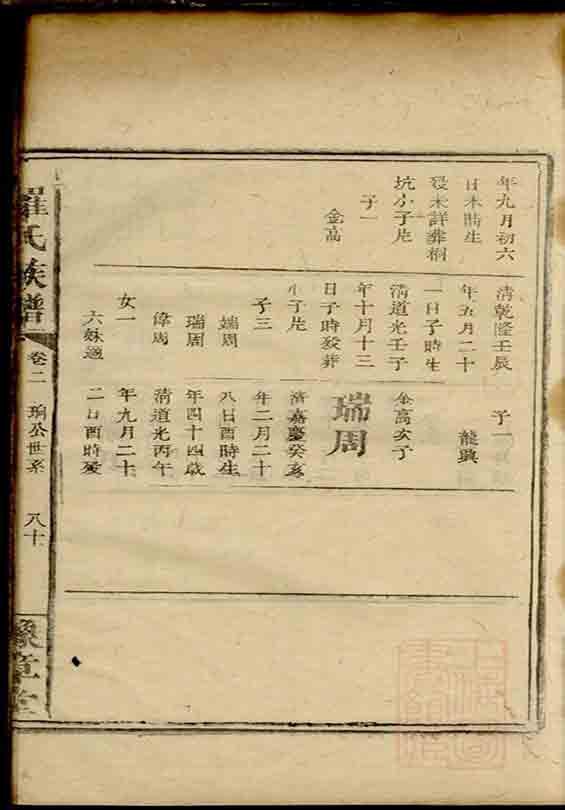 年九月初六
日未時生
歿未詳葬桐
坑小子片
子一
金高
清乾隆壬辰
年五月二十
一日子時生
清道光壬子
年十月十三
日子時歿葬
小子片
子三
端周
瑞周
偉周
女一
六妹適
子一
龍興
金高次子
瑞周
清嘉慶癸亥
年二月二十
八日酉時生
年四十四歲
清道光丙午
年九月二十
二日酉時歿
羅氏族譜
卷二
珦公世系
八十
豫章堂
上海圖書館藏